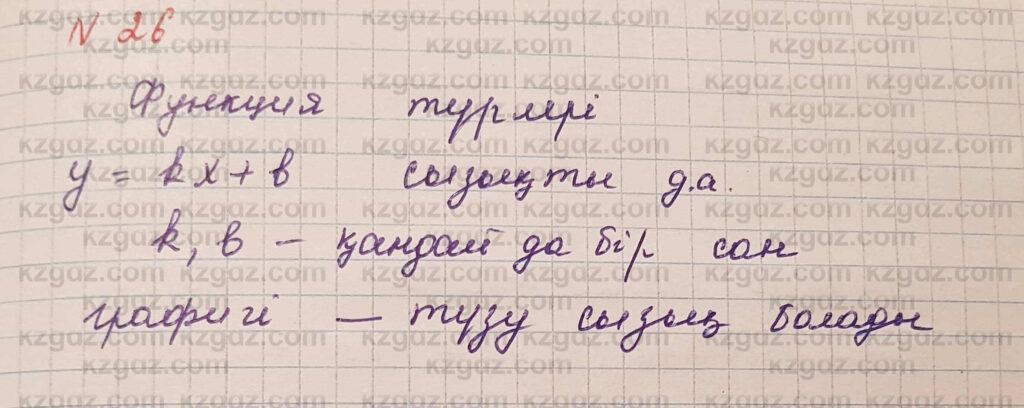 N 26
Функция түрлері
y = kx + b сызықты д.а.
k, b — қандай да бір сан
графигі — түзу сызық болады